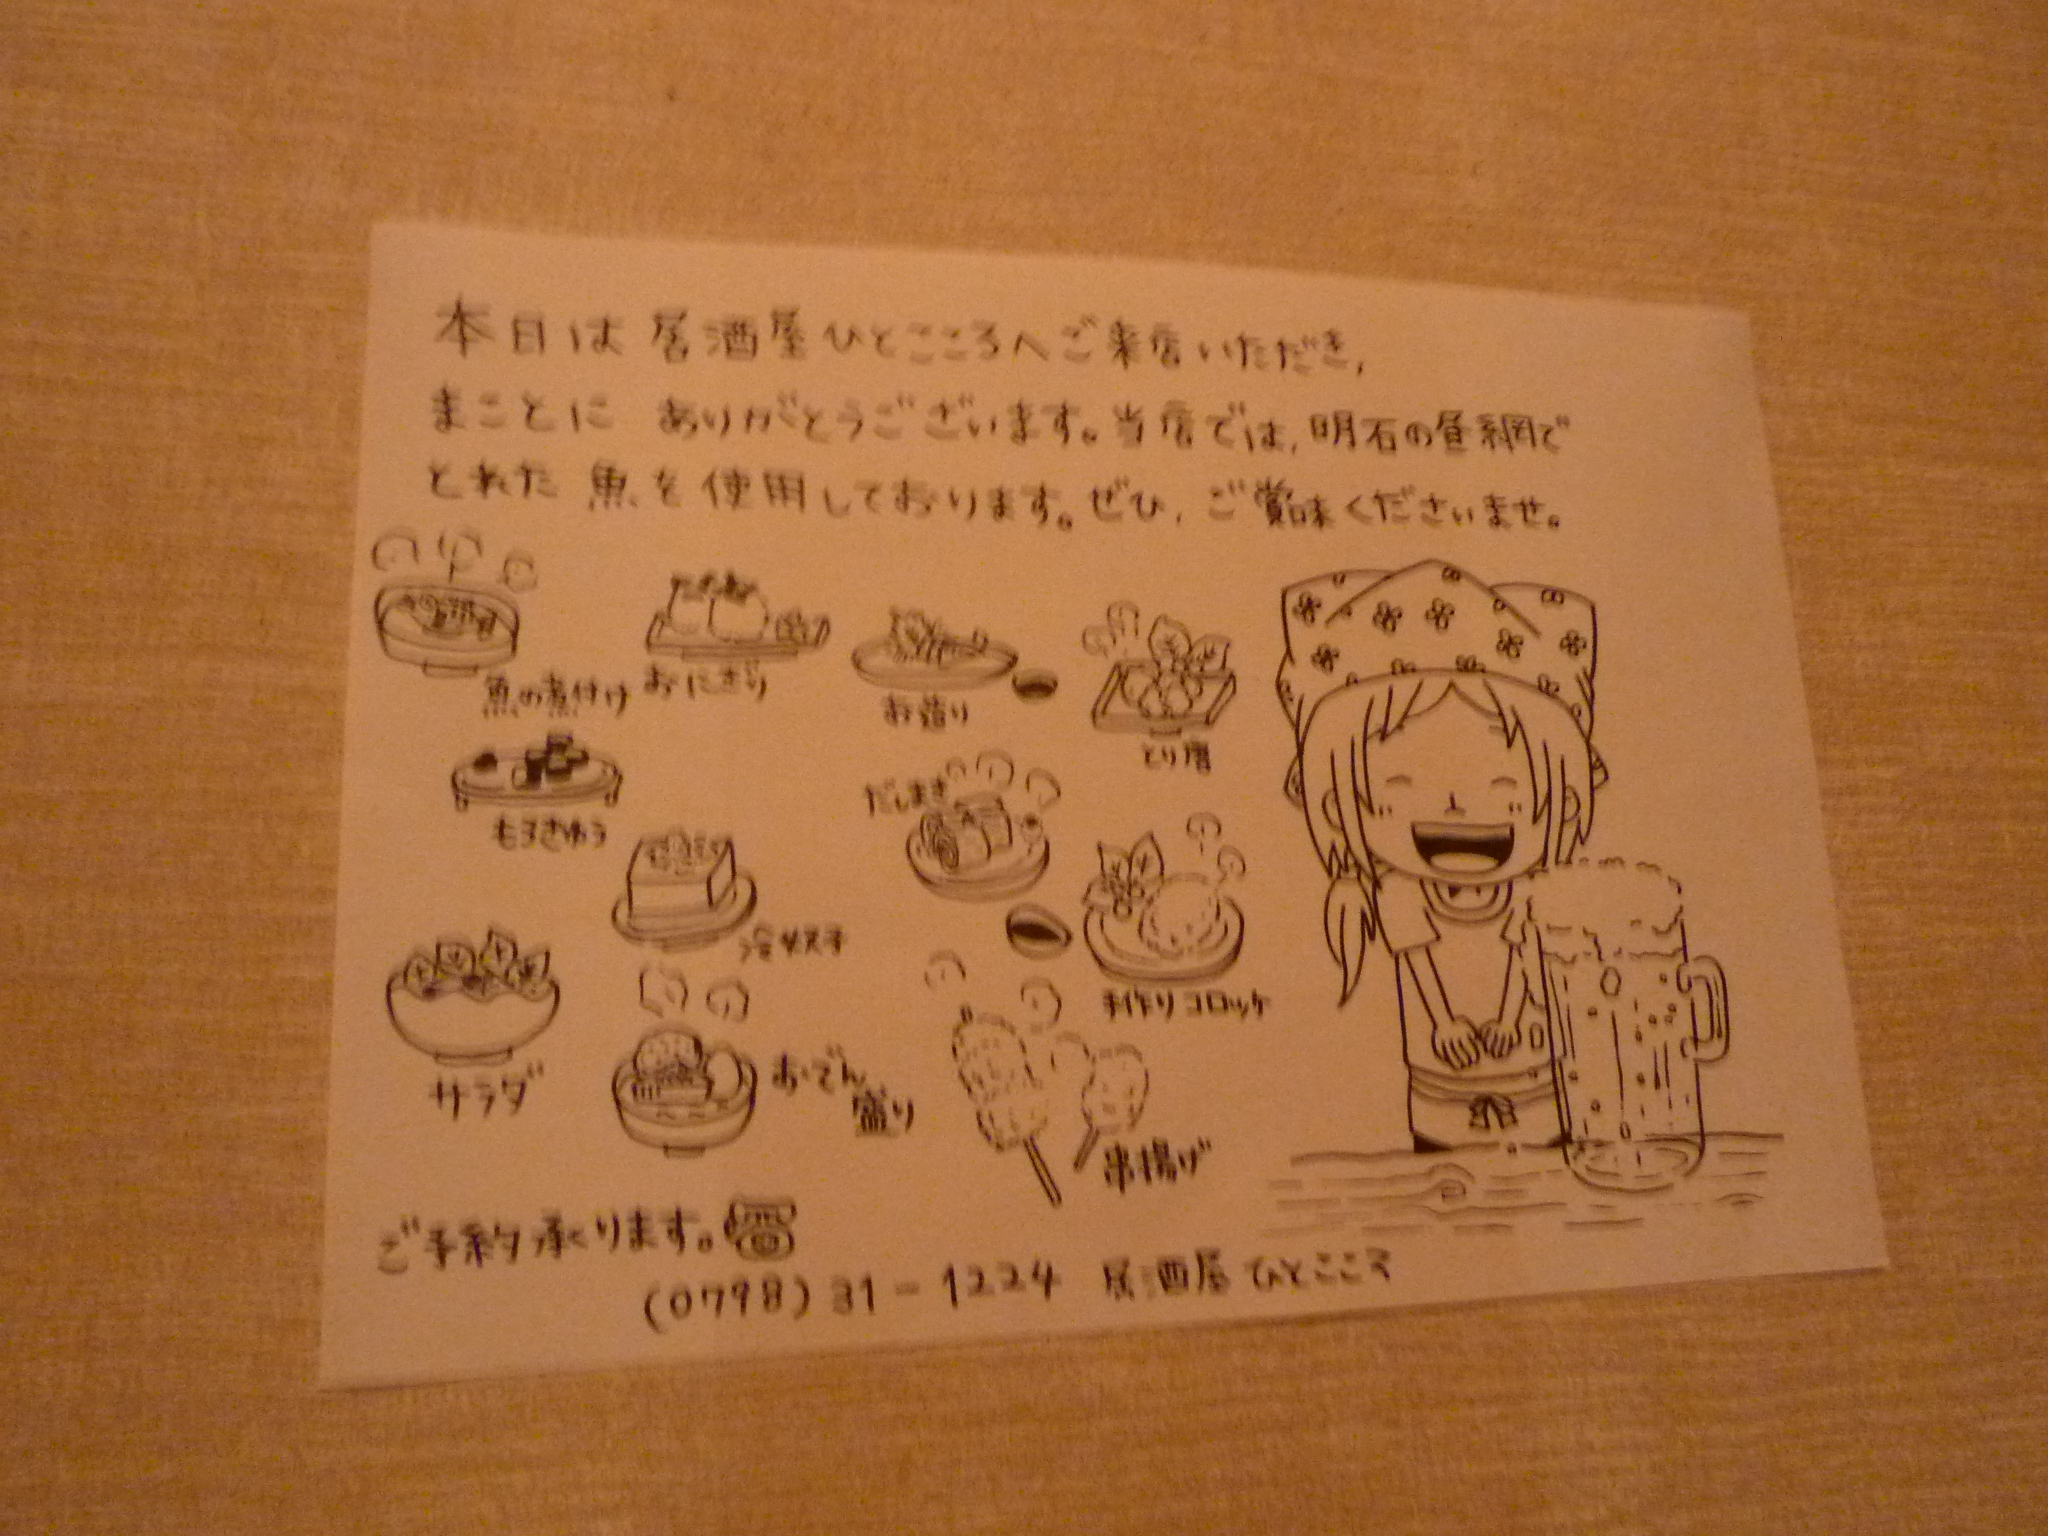 本日は 居酒屋ひとこころへご来店いただき、
まことに ありがとうございます。当店では、明石の昼網で
とれた 魚を使用しております。ぜひ、ご賞味くださいませ。
魚の煮付け
おにぎり
お造り
とり唐
もろきゅう
だしまき
冷奴
手作りコロッケ
サラダ
おでん
盛り
串揚げ
ご予約承ります。
(0798) 31-1224 居酒屋 ひとこころ